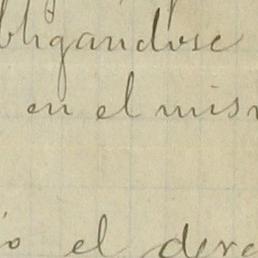 obligandose
en el mis
io el dere